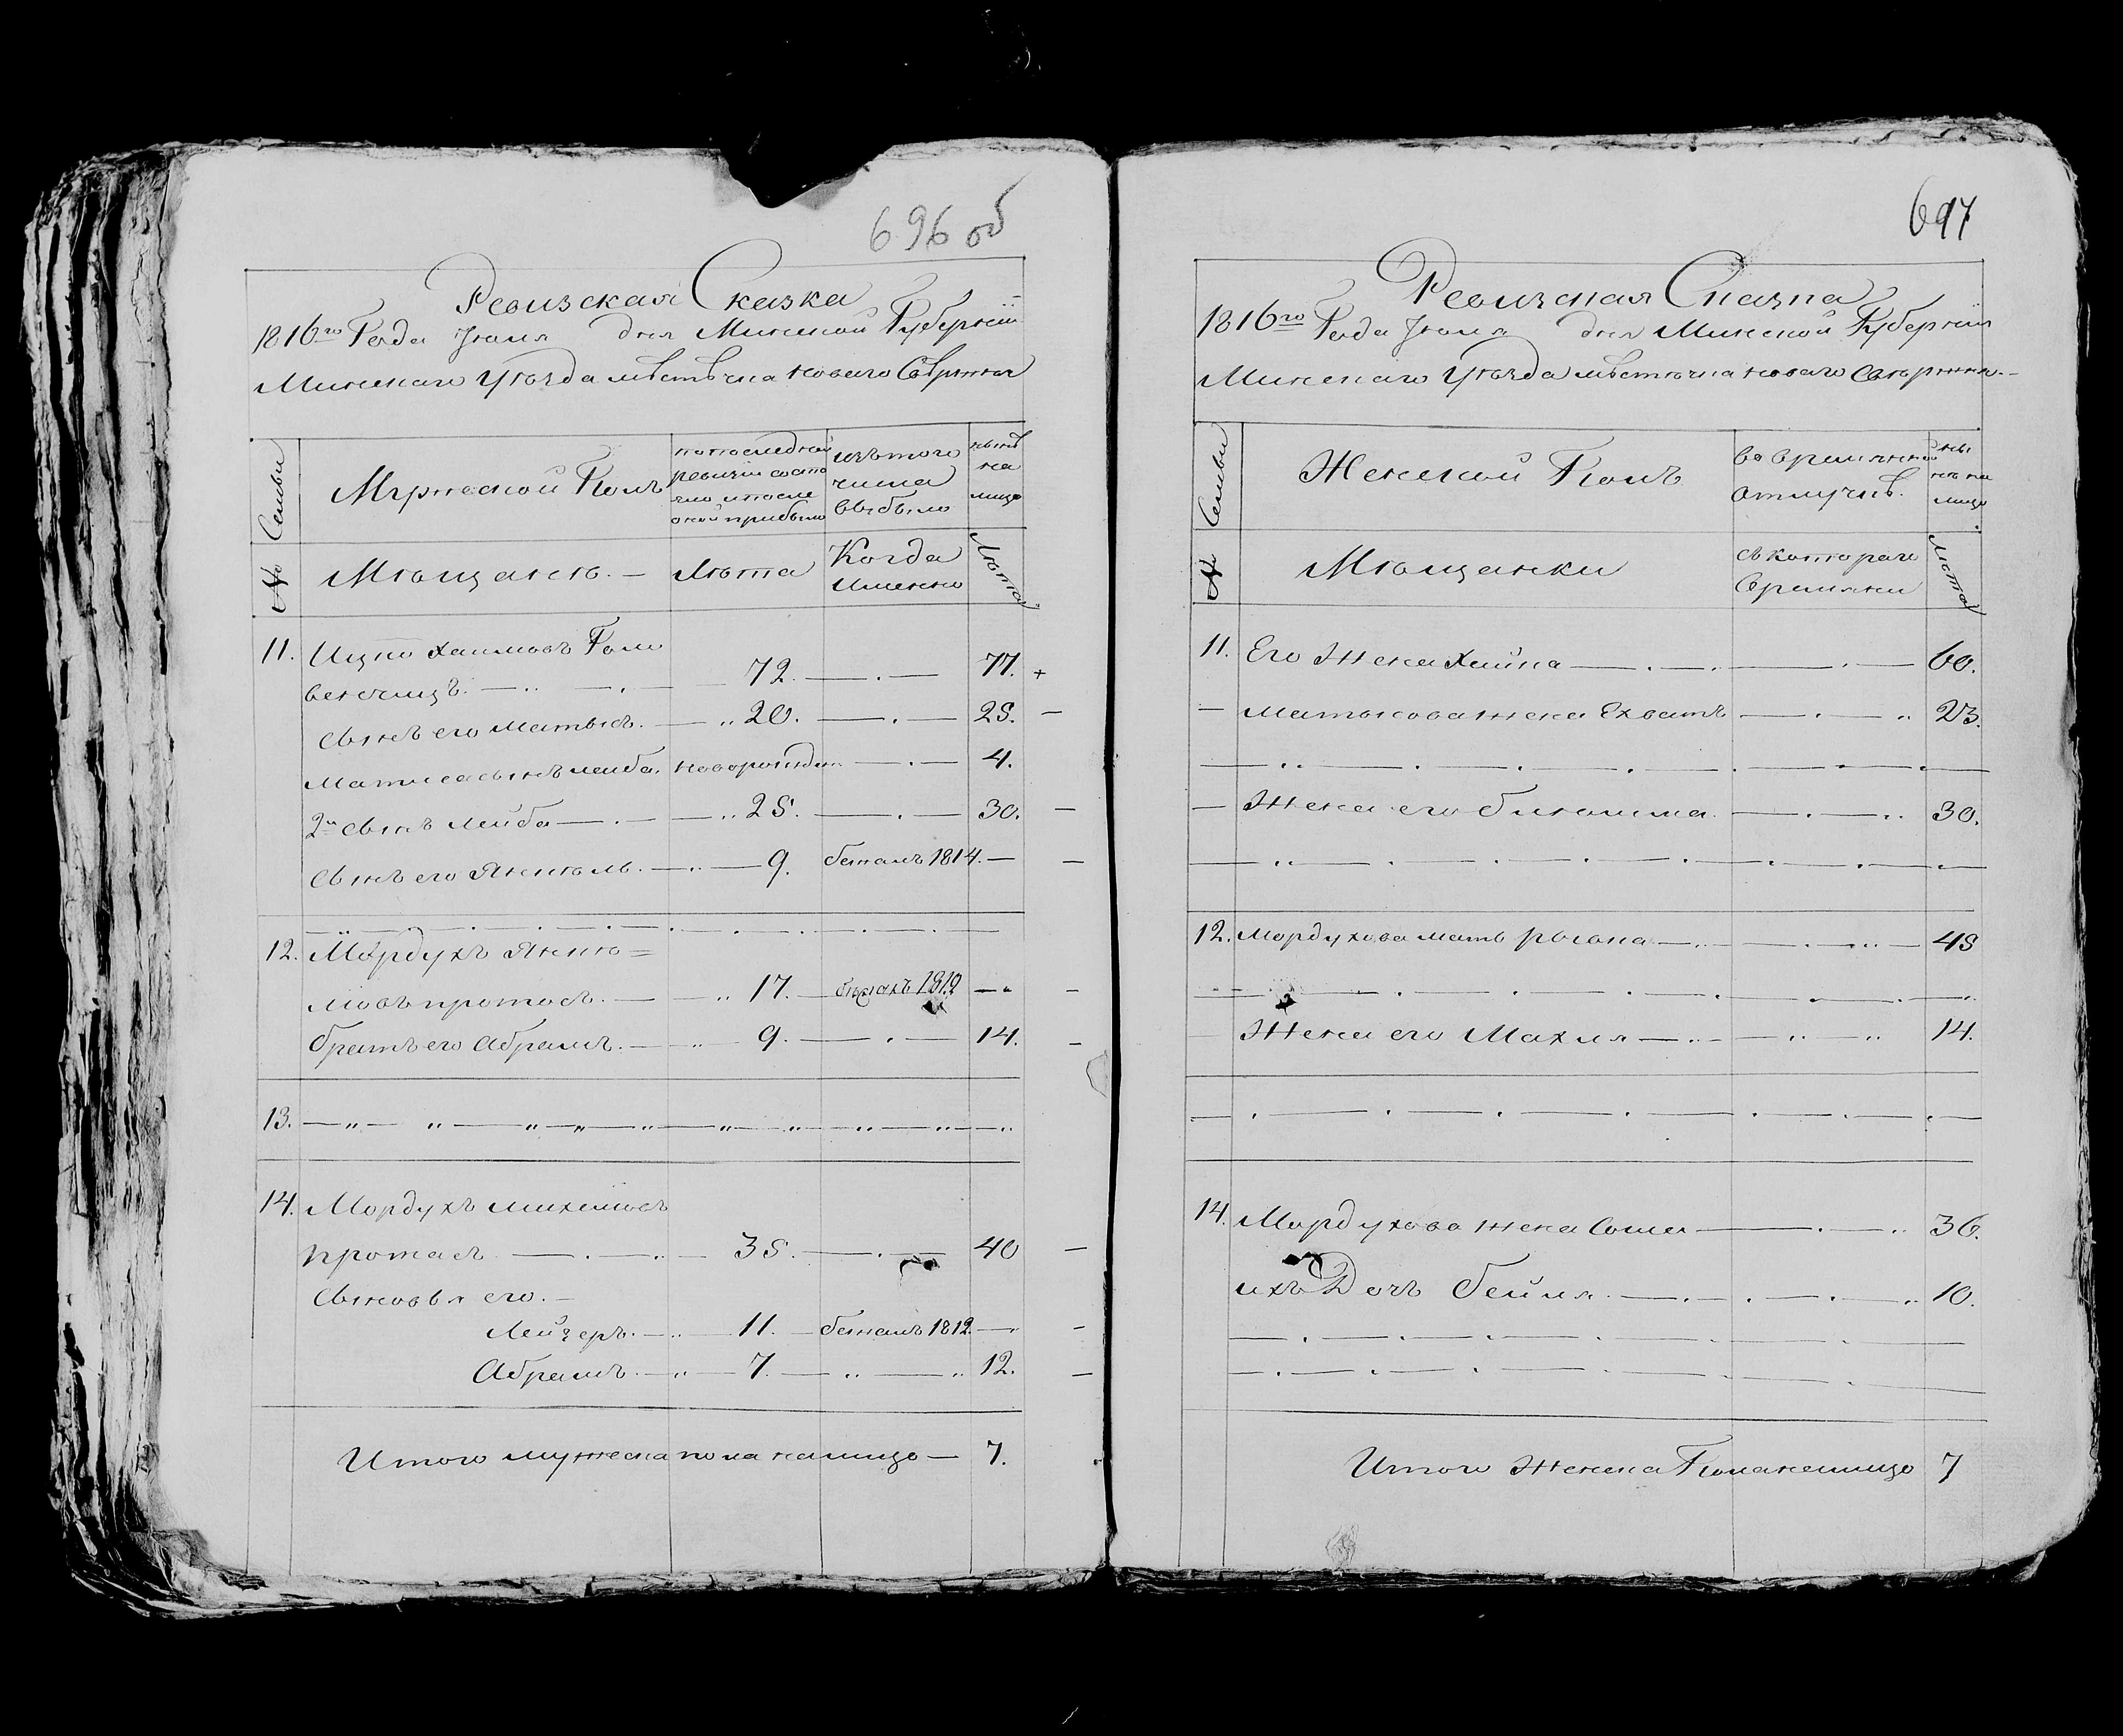 696 об
Ревизская Сказка
1816го Года Июля дня Минской Губернии
Минскаго Уѣзда мѣстѣчка новаго Свѣржня
№ Семьи
Мужеской Полъ
попоследней
ревизіи состо
яло ипосле
оной прибыло
изътого
числа
выбыло
нынѣ
на
лицо
Мѣщанѣ.
Лѣта
Когда
имянно
Лѣта
11. Ицко Хаимовъ Голо
венчицъ. 72. 77. +
Сынъ его Матысъ. 20. 25.
Матиса сынъ лейба. новорожден 4.
2й Сынъ Лейба 25. 30.
Сынъ его Янкель. 9. бежалъ 1814.
12. Мордухъ Янке=
левъ протасъ. 17. 1812
братъ его Абрамъ. 9. 14.
13.
14. Мордухъ михелевъ
протасъ 35. 40
Сыновья его.
Лейзеръ. 11. бежалъ 1812.
Абрамъ. 7. 12.
Итого мужеска пола налицо 7.
697
Ревизская Сказка
1816го Года Июля дня Минской Губернии
Минскаго Уѣзда мѣстѣчка новаго Свѣржня.
№ Семьи
Женской Полъ
во временной
отлучкѣ.
ны
нѣ на
лицо
Мѣщанки
съ котораго
времяни
Лѣта
11. Его Жена Хайка 60.
Матысова жена Ехватъ 23.
Жена его 30.
12. Мордухова мать рысока 45
Жена его Махля 14.
14. Мордухова жена Соша 36.
ихъ Дочъ бейля 10.
Итого Женска Пола налицо 7